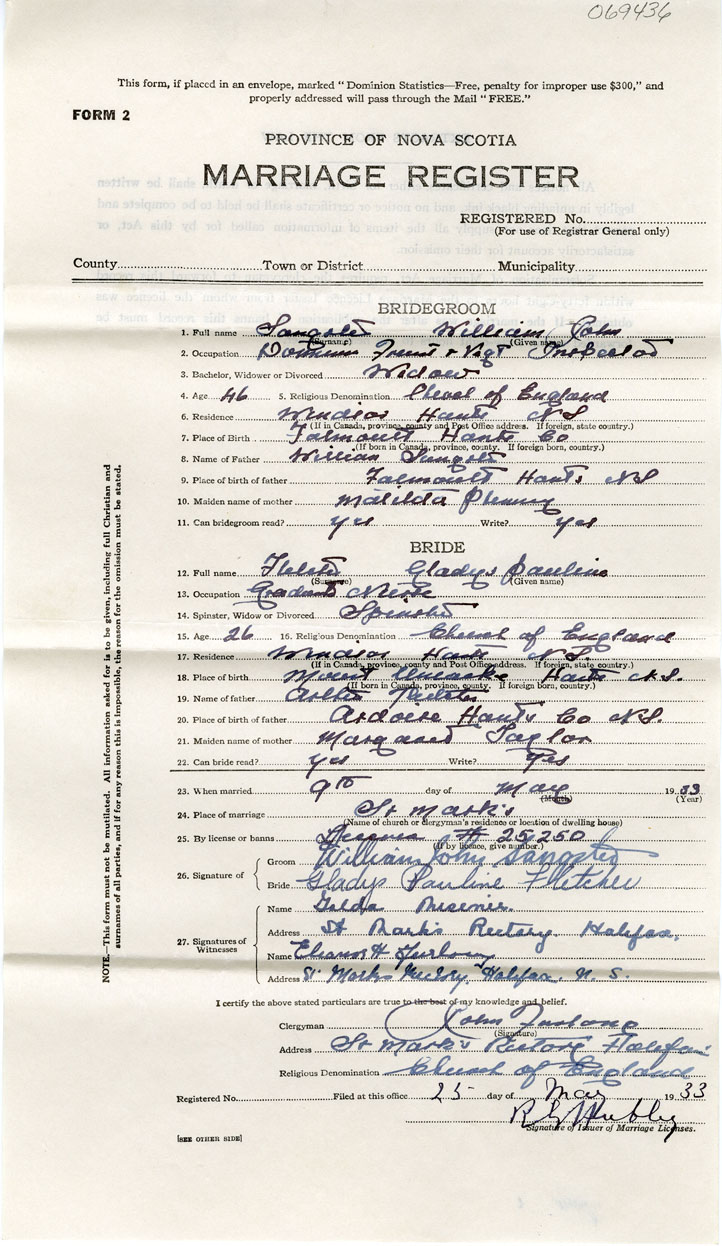 069436
This form, if placed in an envelope, marked "Dominion Statistics—Free, penalty for improper use $300," and
properly addressed will pass through the Mail "FREE."
FORM 2
PROVINCE OF NOVA SCOTIA
MARRIAGE REGISTER
REGISTERED No.
(For use of Registrar General only)
County Town or District Municipality
BRIDEGROOM
1. Full name Sangster William John
(Surname) (Given name)
2. Occupation Fruit & Inspector
3. Bachelor, Widower or Divorced Widower
4. Age 46 5. Religious Denomination Church of England
6. Residence Windsor Hants N S
(If in Canada, province, county and Post Office address. If foreign, state country.)
7. Place of Birth Falmouth Hants Co
(If born in Canada, province, county. If foreign born, country.)
8. Name of Father William Sangster
9. Place of birth of father Falmouth Hants N S
10. Maiden name of mother Matilda
11. Can bridegroom read? yes Write? yes
BRIDE
12. Full name Fletcher Gladys Pauline
(Surname) (Given name)
13. Occupation Graduate Nurse
14. Spinster, Widow or Divorced Spinster
15. Age 26 16. Religious Denomination Church of England
17. Residence Windsor Hants N.S.
(If in Canada, province, county and Post Office address. If foreign, state country.)
18. Place of birth Mount Uniacke Hants N.S.
(If born in Canada, province, county. If foreign born, country.)
19. Name of father Fletcher
20. Place of birth of father Ardoise Hants Co N.S.
21. Maiden name of mother Margaret Taylor
22. Can bride read? yes Write? yes
23. When married 9th day of May 1933
(Month) (Year)
24. Place of marriage St Mark's
(Name of church or clergyman's residence or location of dwelling house)
25. By license or banns # 25,250
(If by licence, give number.)
26. Signature of
Groom William John Sangster
Bride Gladys Pauline Fletcher
27. Signatures of Witnesses
Name Golda
Address St Mark's Rectory Halifax.
Name Eleanor H Furlong
Address St. Marks Rectory, Halifax, N. S.
I certify the above stated particulars are true to the best of my knowledge and belief.
Clergyman John Furlong
(Signature)
Address St Mark's Rectory Halifax
Religious Denomination Church of England
Registered No. Filed at this office 25 day of May 1933
Signature of Issuer of Marriage Licenses.
[SEE OTHER SIDE]
NOTE.—This form must not be mutilated. All information asked for is to be given, including full Christian and
surnames of all parties, and if for any reason this is impossible, the reason for the omission must be stated.